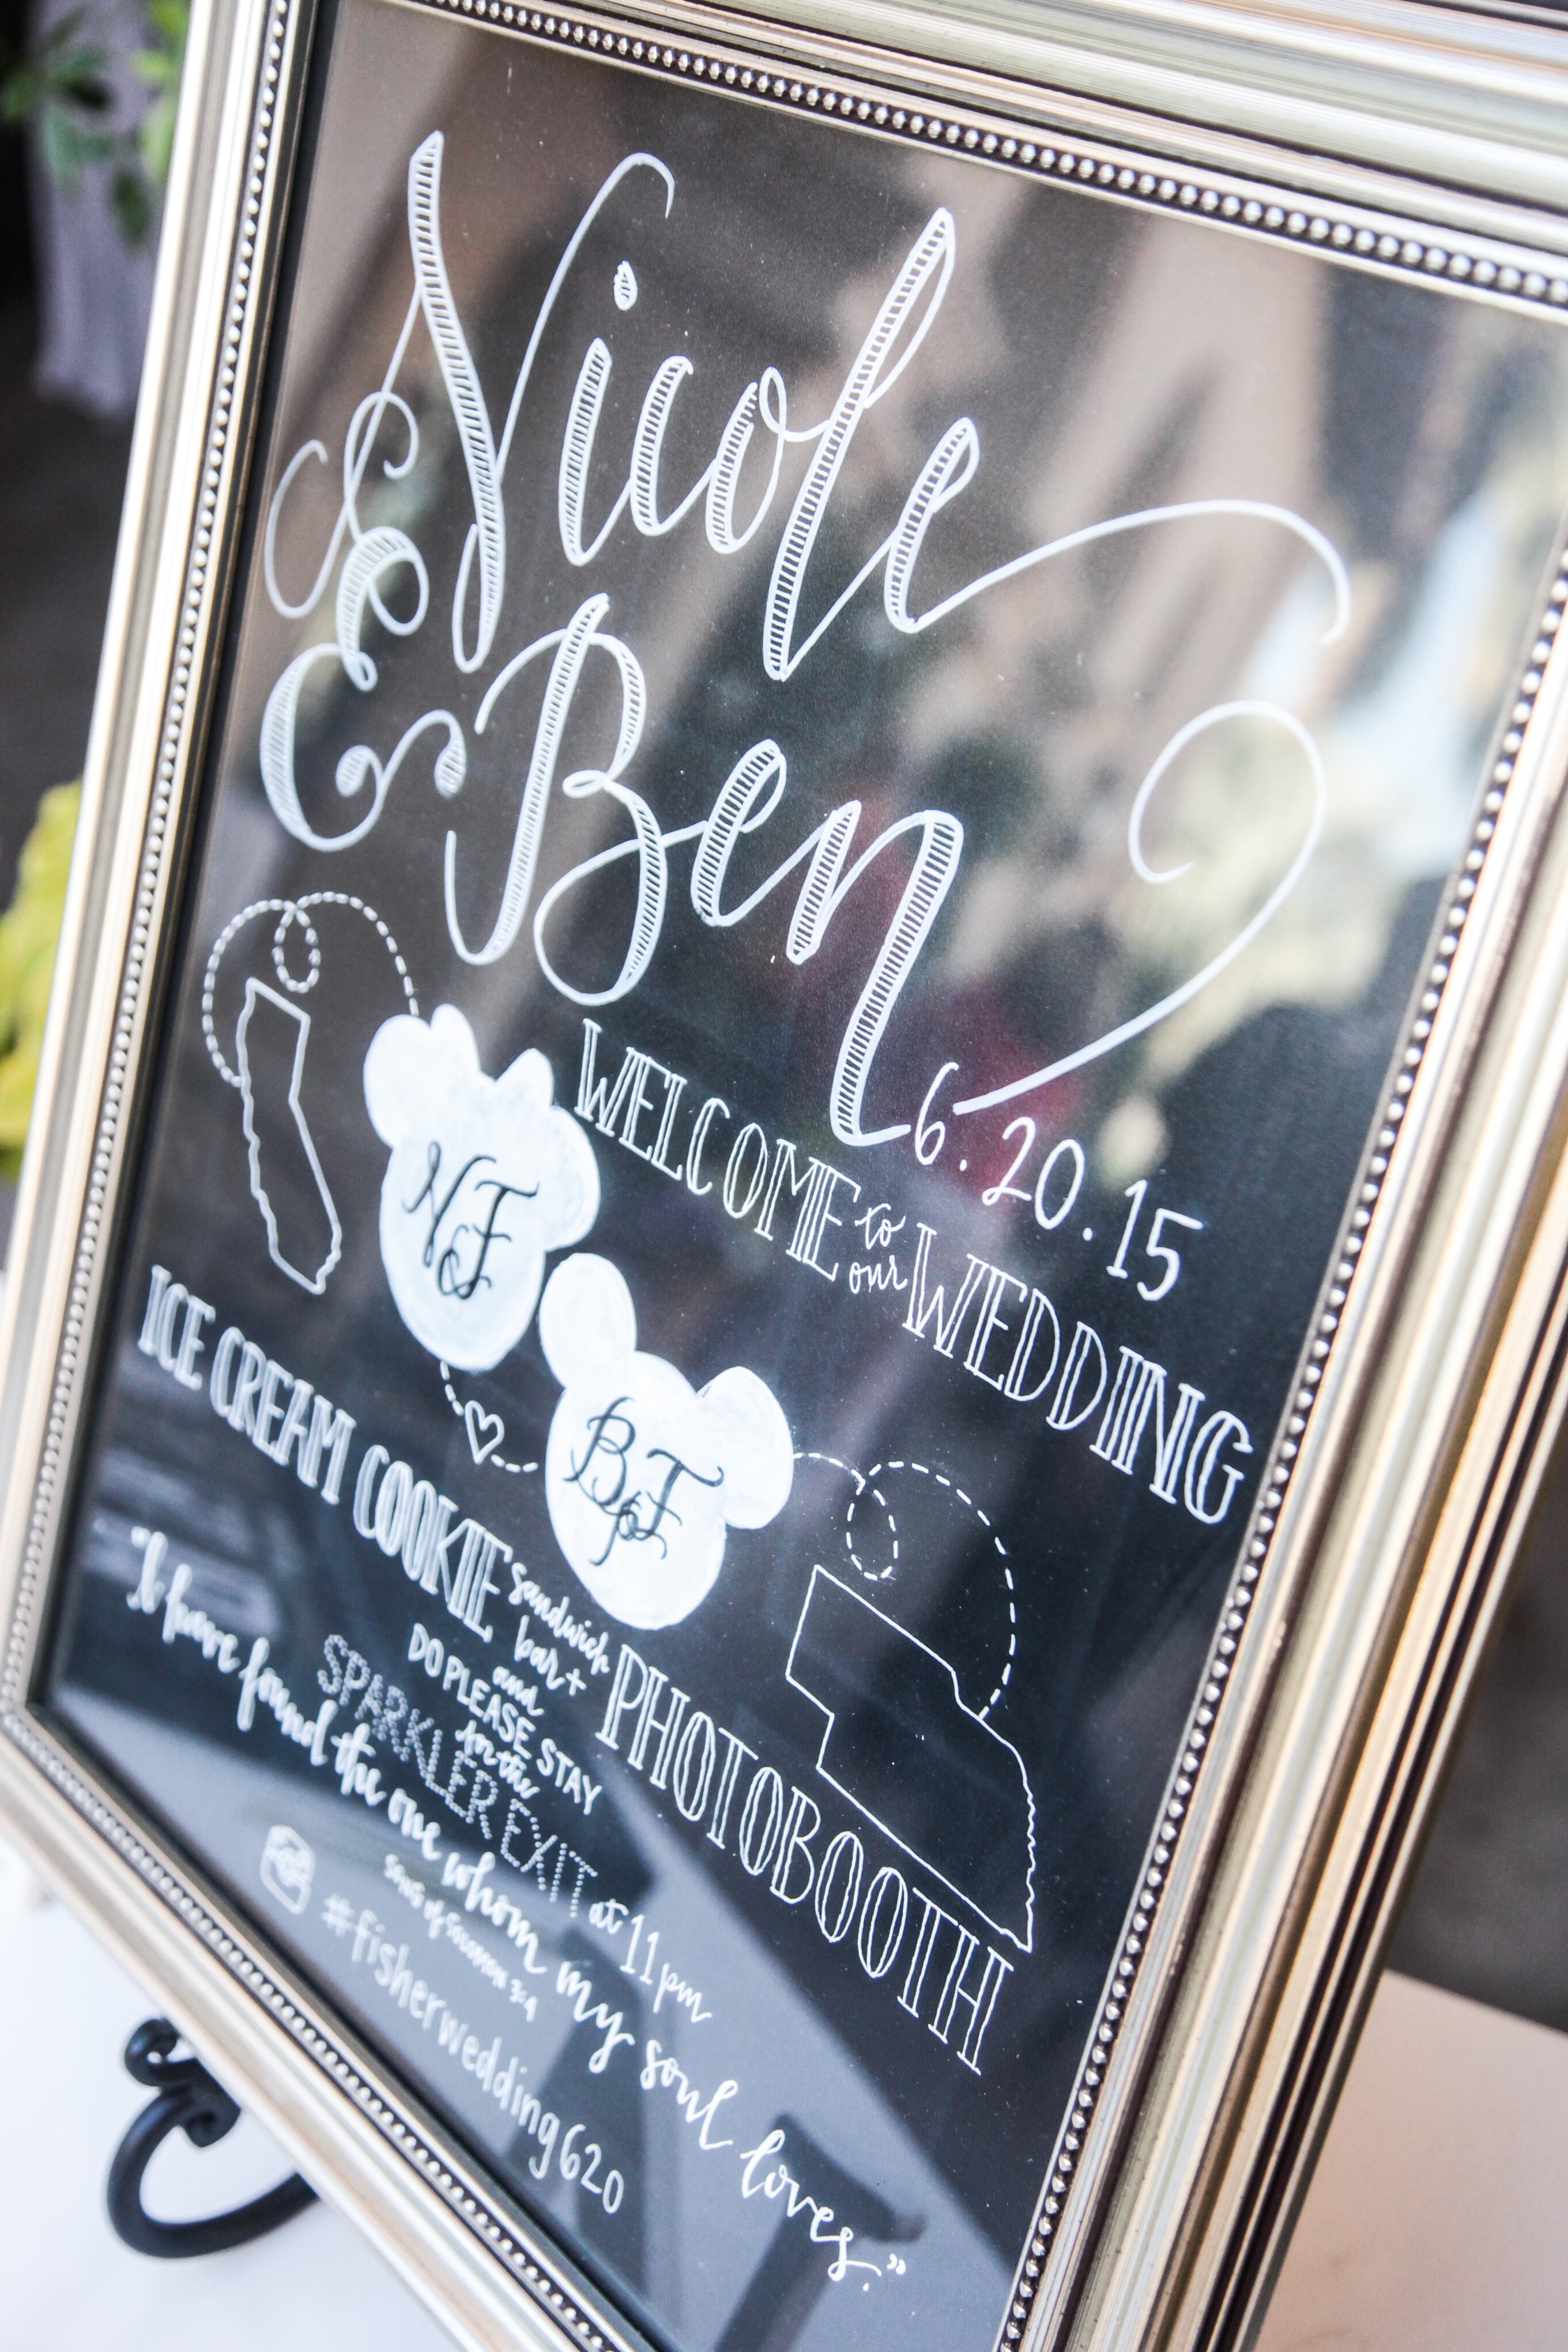 Nicole
& Ben
6.20.15
WELCOME to our WEDDING
NJF
BPF
ICE CREAM COOKIE sandwich bar + PHOTOBOOTH
and
DO PLEASE STAY
for the
SPARKLER EXIT at 11pm
"I have found the one whom my soul loves."
SONG of SOLOMON 3:4
#fisherwedding620